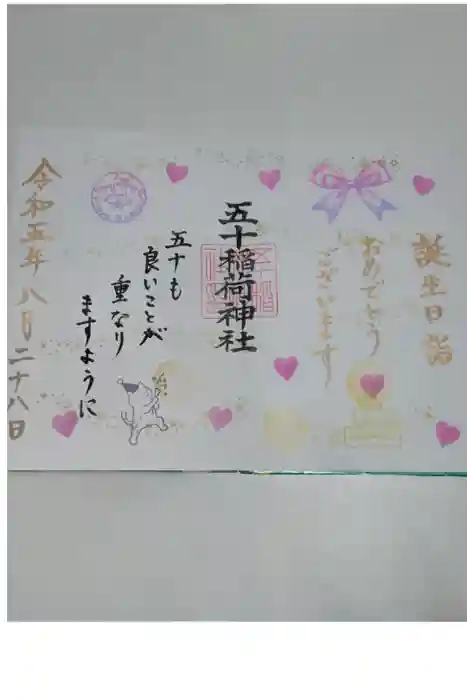 誕生日詣
おめでとう
ございます
五十稲荷神社
五十も
良いことが
重なり
ますように
令和五年八月二十八日